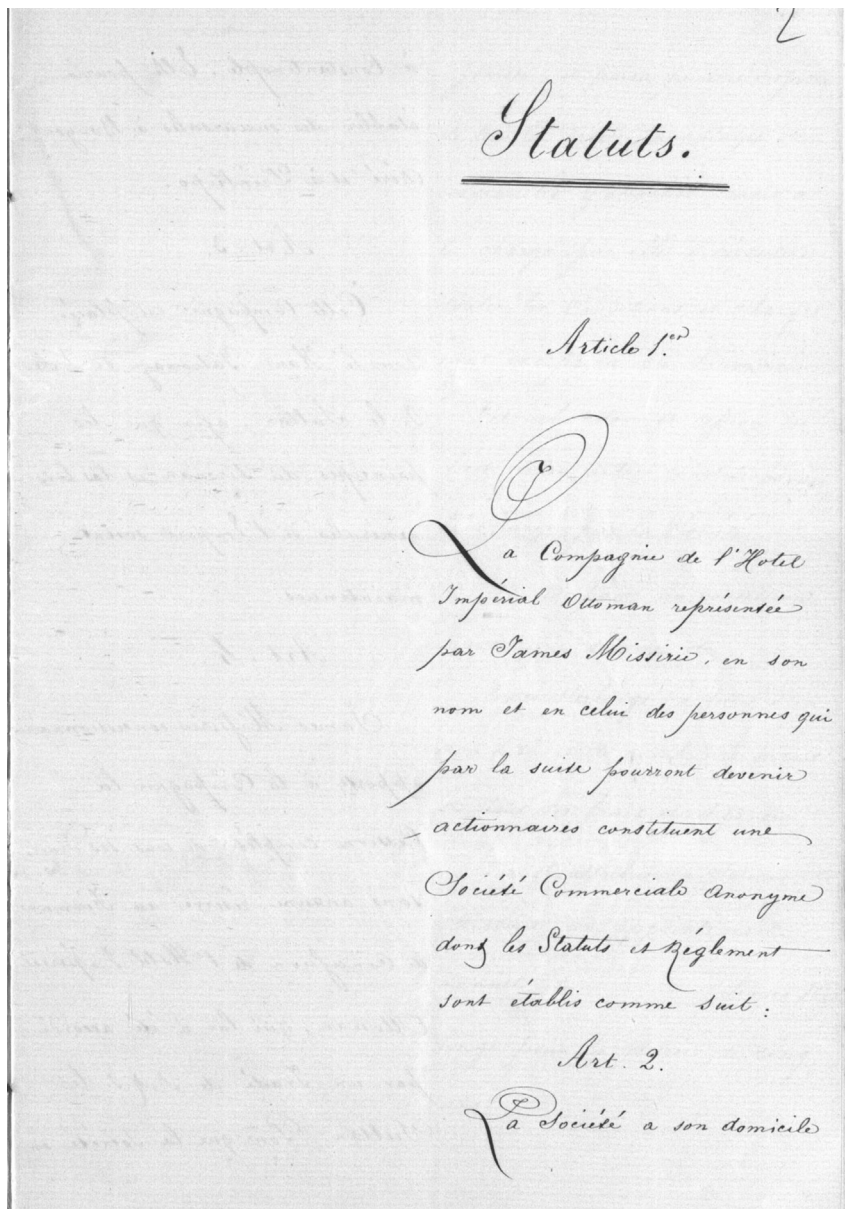 2
Statuts.
Article 1.er
La Compagnie de l'Hotel
Impérial Ottoman représentée
par James Missirie, en son
nom et en celui des personnes qui
par la suite pourront devenir
actionnaires constituent une
Société Commerciale Anonyme
dont les Statuts et Réglement
sont établis comme suit :
Art. 2.
La Société a son domicile